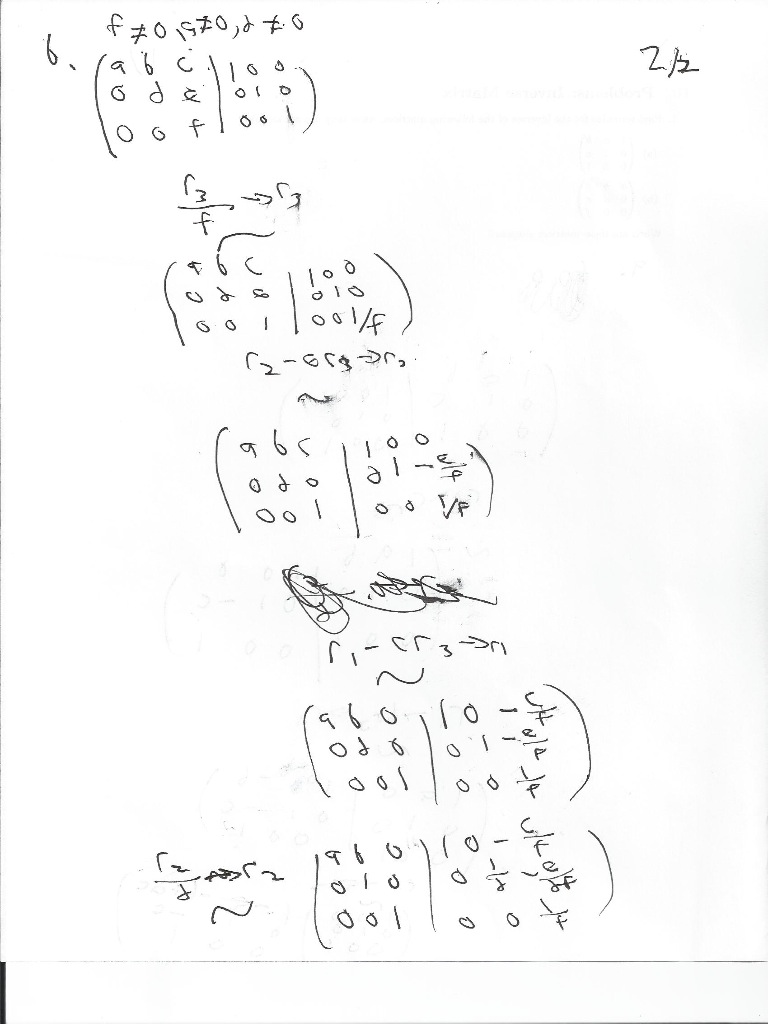 f ≠ 0, a ≠ 0, d ≠ 0
6.
2/2
a b c | 1 0 0
0 d e | 0 1 0
0 0 f | 0 0 1
r3/f → r3
a b c | 1 0 0
0 d e | 0 1 0
0 0 1 | 0 0 1/f
r2 - er3 → r2
~
a b c | 1 0 0
0 d 0 | 0 1 -e/f
0 0 1 | 0 0 1/f
r1 - cr3 → r1
~
a b 0 | 1 0 -c/f
0 d 0 | 0 1 -e/f
0 0 1 | 0 0 1/f
r2/d → r2
~
a b 0 | 1 0 -c/f
0 1 0 | 0 1/d -e/df
0 0 1 | 0 0 1/f